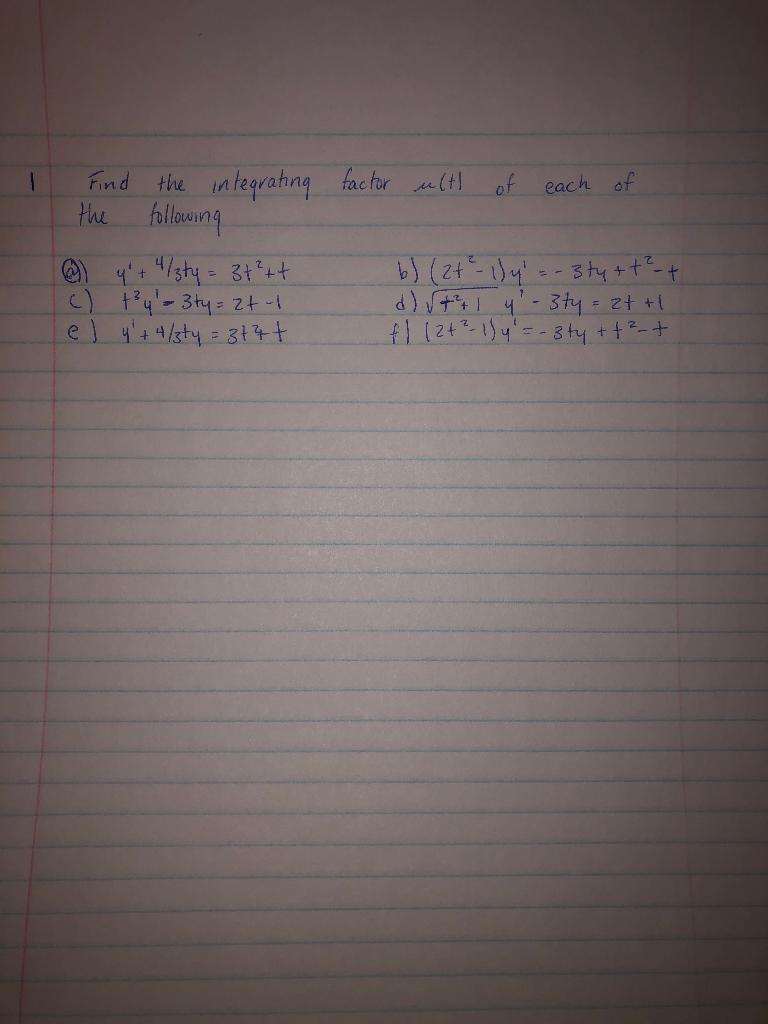 1 Find the integrating factor u(t) of each of
the following
a) y' + 4/3ty = 3t²+t b) (2t²-1)y' = -3ty+t²-t
c) t³y'-3ty=2t-1 d) √t²+1 y' - 3ty = 2t +1
e) y'+4/3ty = 3t²+t f) (2t²-1)y' = -3ty +t²-t